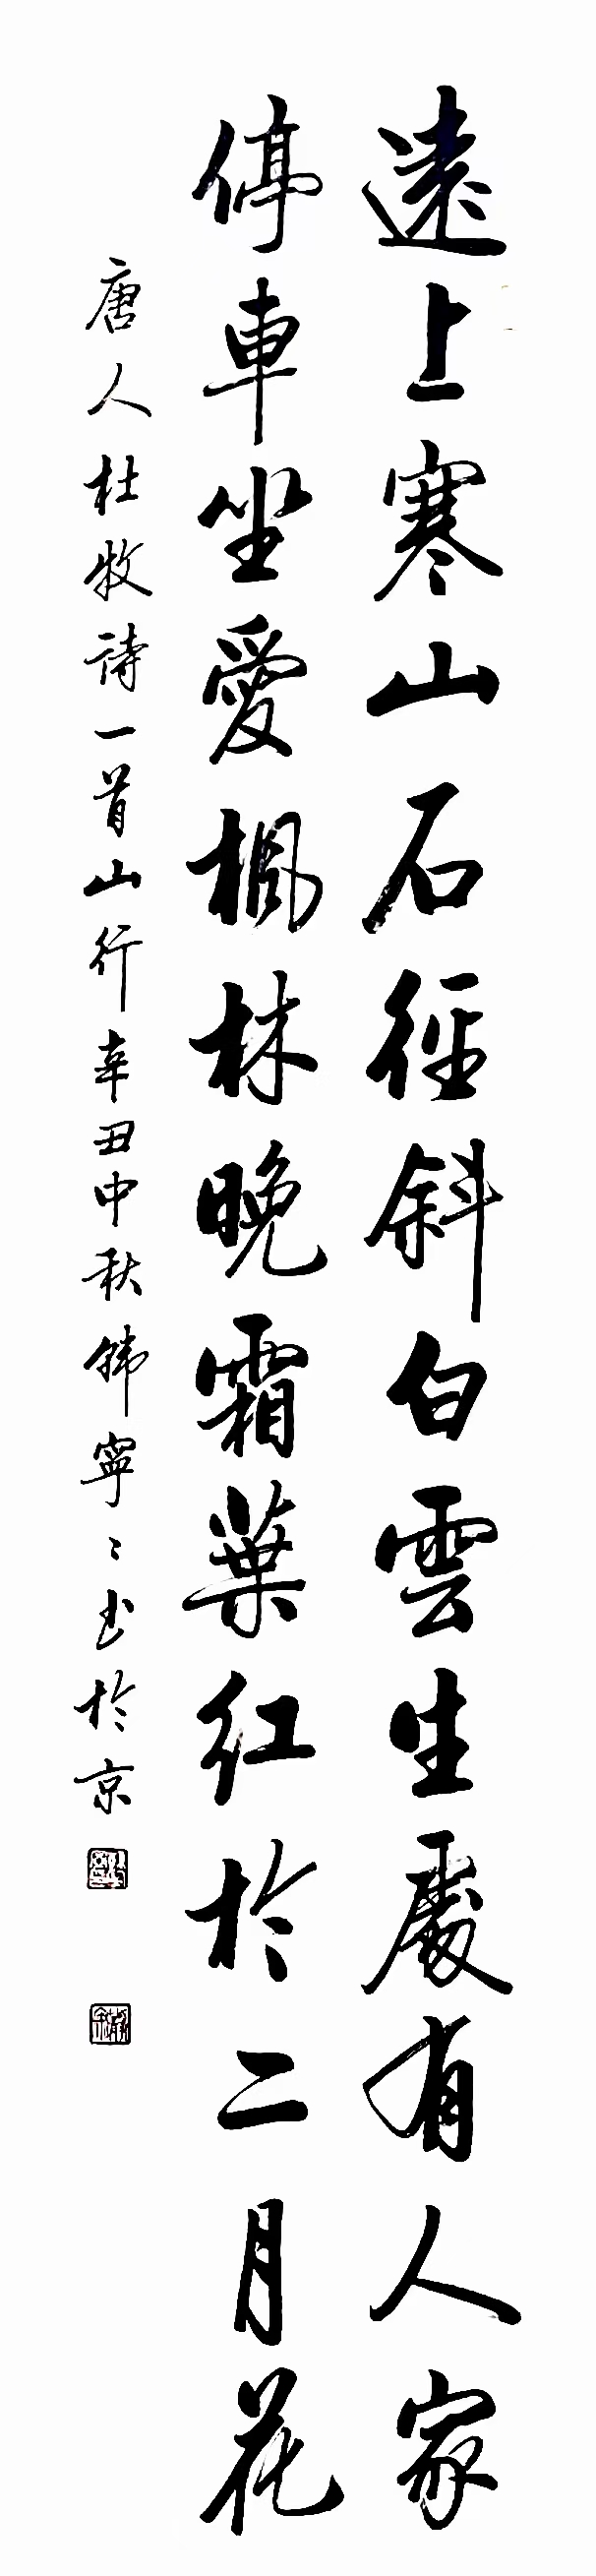 遠上寒山石徑斜白雲生處有人家
停車坐愛楓林晚霜葉紅於二月花
唐人杜牧詩一首山行辛丑中秋韓寧寧书於京